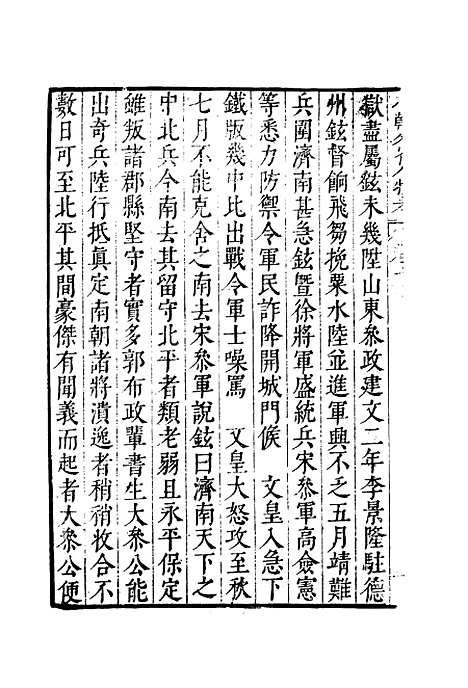 獄盡屬鉉未幾陞山東參政建文二年李景隆駐德
州鉉督餉飛芻挽粟水陸並進軍興不乏五月靖難
兵圍濟南甚急鉉暨徐將軍盛統兵宋參軍高僉憲
等悉力防禦令軍民詐降開城門候　文皇入急下
鐵版幾中比出戰令軍士噪罵　文皇大怒攻至秋
七月不能克舍之南去宋參軍說鉉曰濟南天下之
中北兵今南去其留守北平者類老弱且永平保定
雖叛諸郡縣堅守者實多郭布政輩書生大參公能
出奇兵陸行抵真定南朝諸將潰逸者稍稍收合不
數日可至北平其間豪傑有聞義而起者大參公便